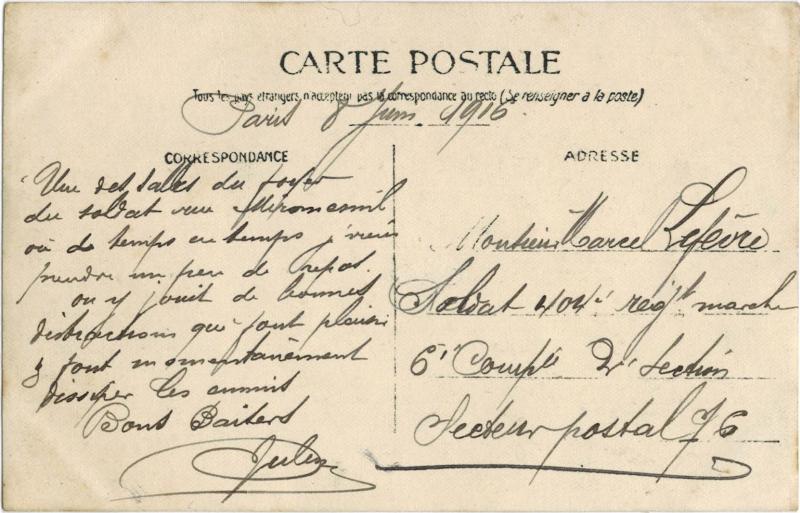 CARTE POSTALE
Tous les pays étrangers n'acceptent pas la correspondance au recto (Se renseigner à la poste)
Paris 8 Juin 1916
CORRESPONDANCE
Une des salles du foyer
du soldat rue Miromesnil
où de temps en temps j'viens
prendre un peu de repos.
on y jouit de bonnes
distractions qui font plaisir
& font momentanément
dissiper les ennuis
Bons Baisers
Jules
ADRESSE
Monsieur Marcel Lefèvre
Soldat 404e régt marche
6e Compie 2e Section
Secteur postal 76